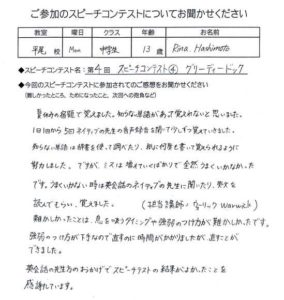 ご参加のスピーチコンテストについてお聞かせください
教室 曜日 クラス 年齢 お名前
平尾 校 Mon 中学生 13 歳 Rina. Hashimoto
◆スピーチコンテスト名：第4回 スピーチコンテスト④ グリーディードッグ
◆今回のスピーチコンテストに参加されてのご感想をお聞かせください
(難しかったところ、ためになったこと、次回への抱負など)
夏休みの宿題で覚えました。知らない単語があって覚えれないと思いました。
1日1回から5回ネイティブの先生の音声録音を聞いて少しずつ覚えていきました。
知らない単語は辞書を使って調べたり、紙に何度も書いて覚えられるように
努力しました。ですが、ミスは増えていくばかりで全然うまくいかなかった
です。うまくいかない時は英会話のネイティブの先生に聞いたり、英文を
読んでもらい、覚えました。 (担当講師 ウォーリック Warwick)
難かしかったことは、息を吸うタイミングや強弱のつけ方が難かしかったです。
強弱のつけ方が下手なので直すのに時間がかかりましたが、直すことが
できました。
英会話の先生方のおかげでスピーチテストの結果がよかったことを
感謝しています。